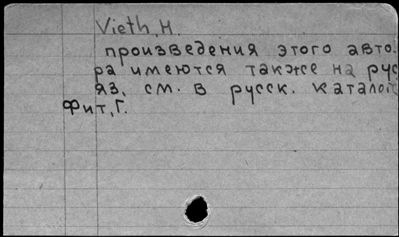 Vieth, H.
произведения этого авто-
ра имеются также на рус
яз. см. в русск. каталог
Фит, Г.